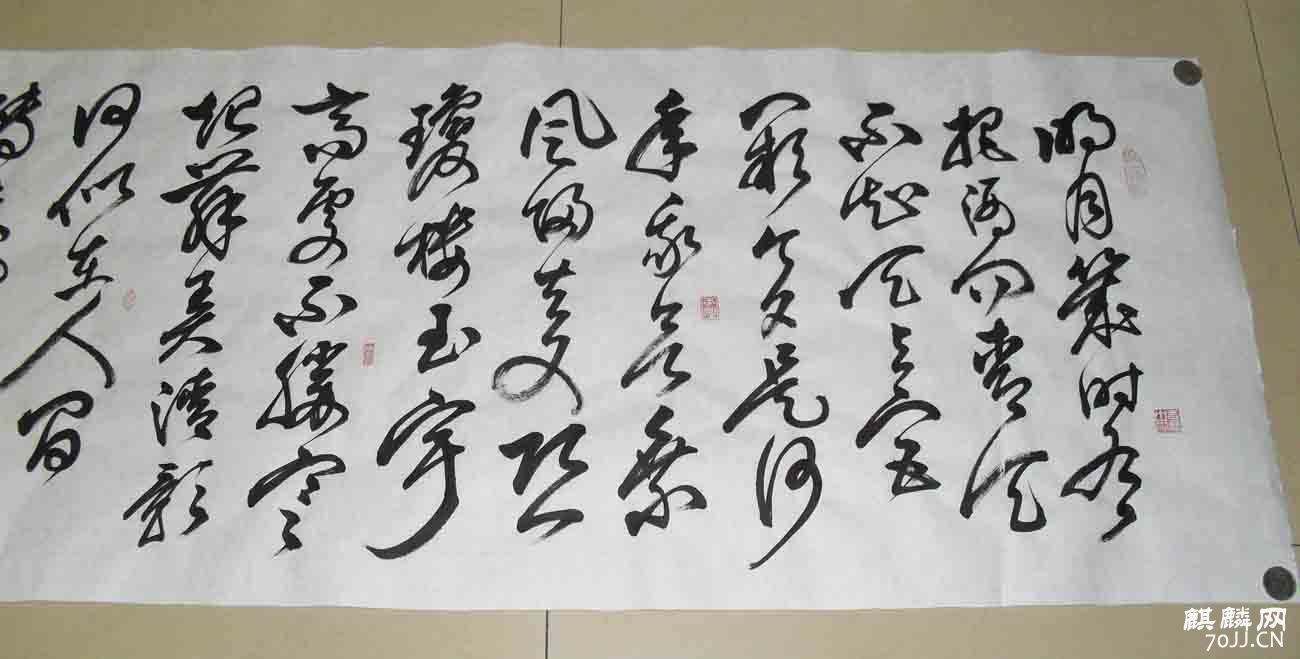 明月幾时有
把酒问青天
不知天上宫
闕今夕是何
年我欲乘
风歸去又恐
瓊樓玉宇
高處不勝寒
起舞弄清影
何似在人间
轉
麒麟网
70JJ.CN